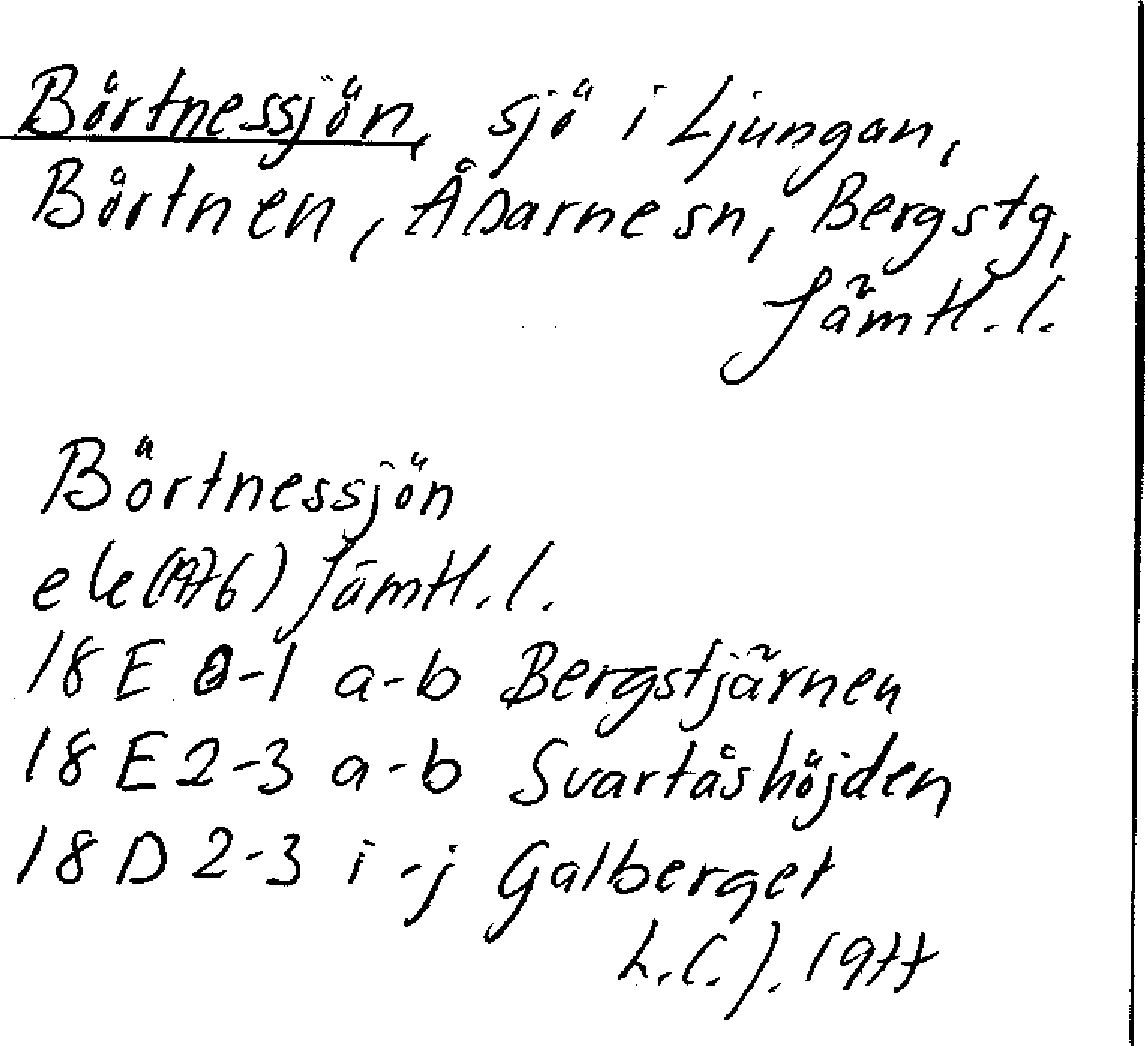 Börtnessjön, sjö i Ljungan,
Börtnen, Åsarnesn, Bergstg,
Jämtl. l.
Börtnessjön
ek(1976) Jämtl. l.
18 E 0-1 a-b Bergstjärnen
18 E 2-3 a-b Svartåshöjden
18 D 2-3 i-j Galberget
L.C.J. 1977